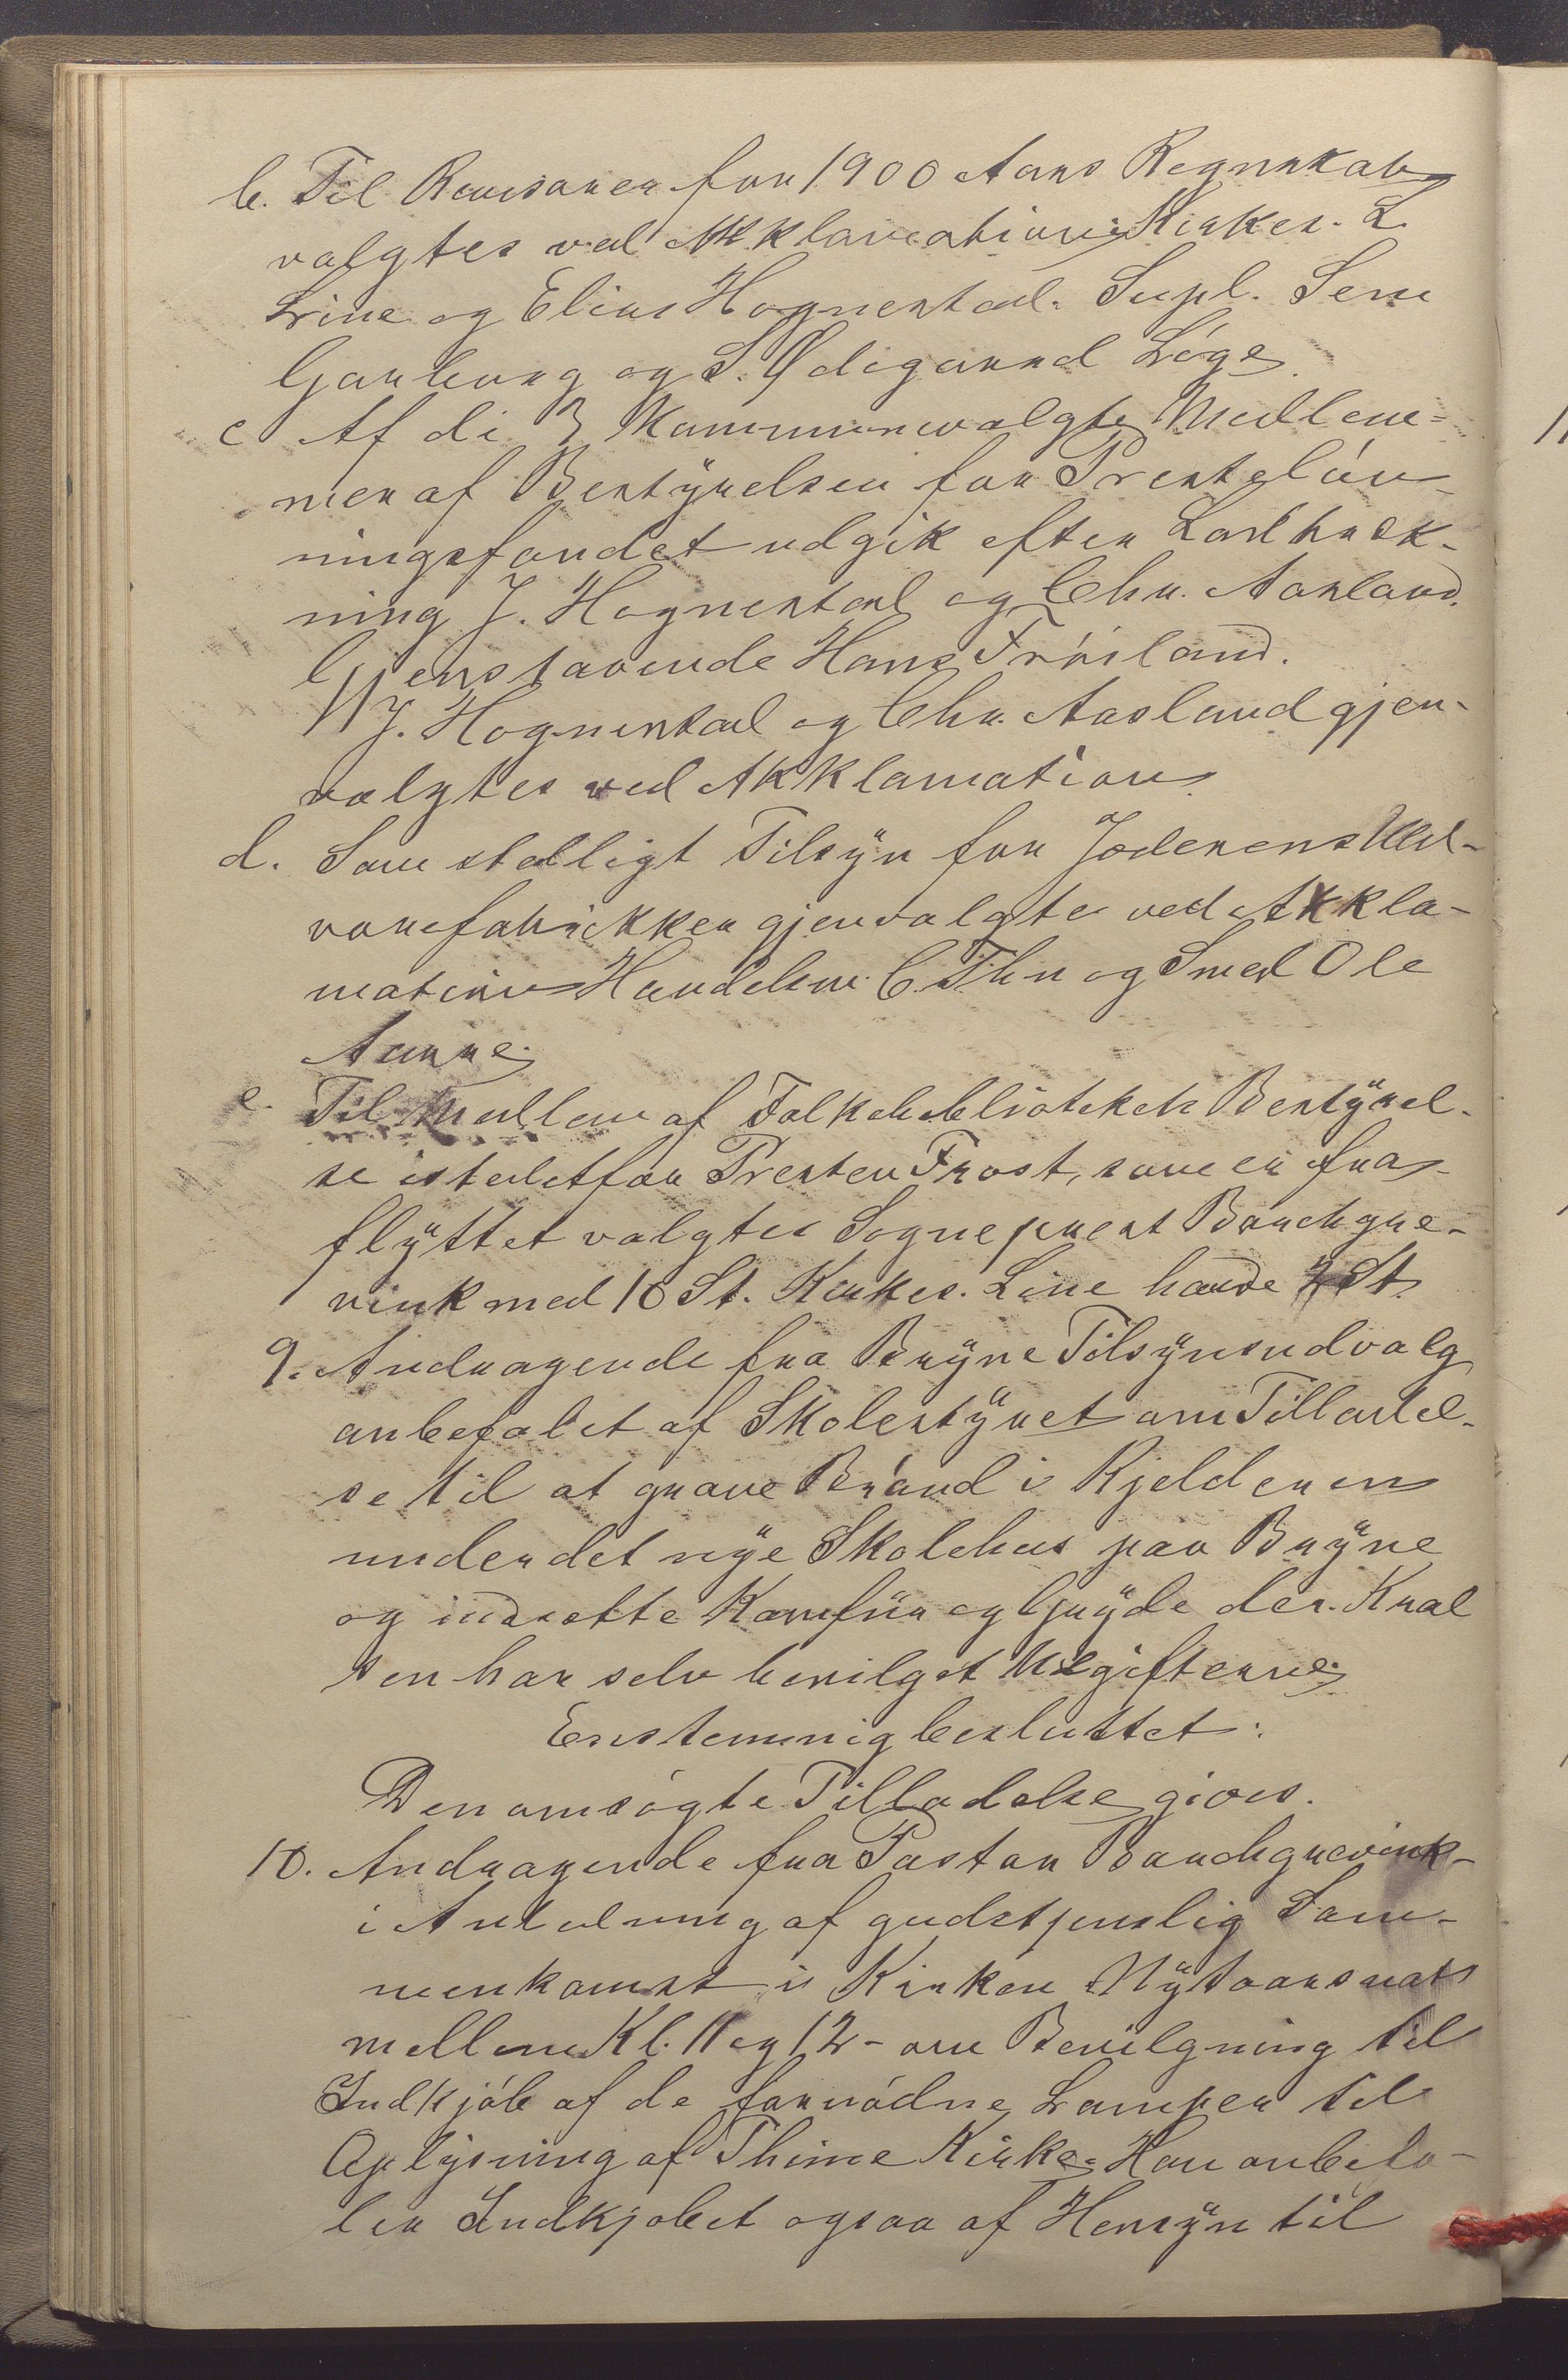 b. Til Revisorer for 1900 Aars Regnskab
valgtes ved Akklamation: Kirkes. L.
Line og Elias Hognestad. Supl. Sem
Garborg og S. Ødegaard Løge.
c Af de 3 Kommunevalgte Medlem-
mer af Bestyrelsen for Presteløn-
ningsfondet udgik efter Lodtræk-
ning J. Hognestad og Chr. Aasland.
Gjenstaaende Hans Frøiland.
J. Hognestad og Chr. Aasland gjen-
valgtes ved Akklamation.
d. Som stedligt Tilsyn for Jæderens Uld-
varefabrikker gjenvalgtes ved Akkla-
mation Handelsm. C. Thu og Smed Ole
Aunne.
e. Til Medlem af Folkebibliotekets Bestyrel-
se istedetfor Presten Frost, som er fra-
flyttet valgtes Sogneprest Borchgre-
vink med 10 St. Kirkes. Line havde 2 St.
9. Andragende fra Bryne Tilsynsudvalg
anbefalet af Skolestyret om Tilladel-
se til at grave Brønd i Kjelderen
under det nye Skolehus paa Bryne
og indsætte Komfür og Gryde der. Kred
sen har selv bevilget Udgifterne.
Enstemmig besluttet:
Den omsøgte Tilladelse gives.
10. Andragende fra Pastor Borchgrevink
i Anledning af gudstjenslig Sam-
menkomst i Kirken Nytaarsnat
mellem Kl. 11 og 12 - om Bevilgning til
Indkjøb af de fornødne Lamper til
Oplysning af Thime Kirke. Han anbefa-
ler Indkjøbet ogsaa af Hensyn til